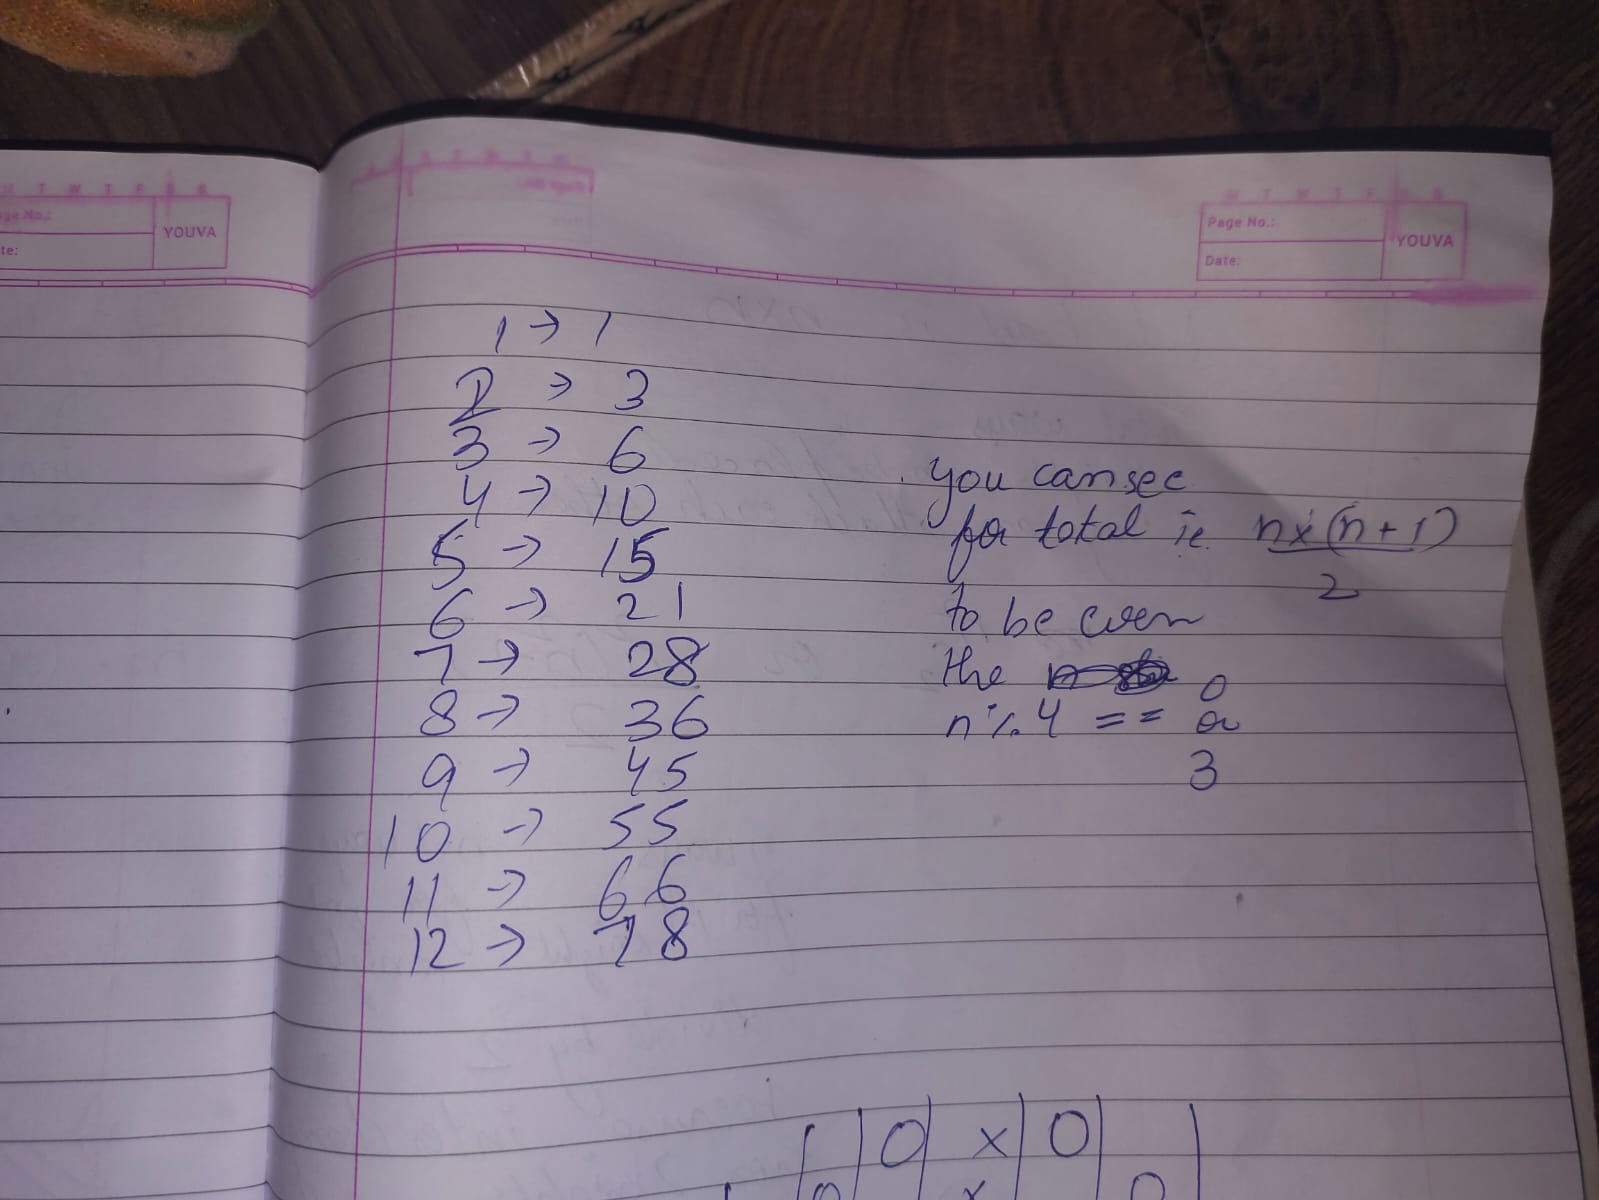 M T W T F S S
Page No.:
Date:
YOUVA
1 → 1
2 → 3
3 → 6
4 → 10
5 → 15
6 → 21
7 → 28
8 → 36
9 → 45
10 → 55
11 → 66
12 → 78
you can see
for total ie. n×(n+1)
2
to be even
the
0
n % 4 == or
3
0 x 0